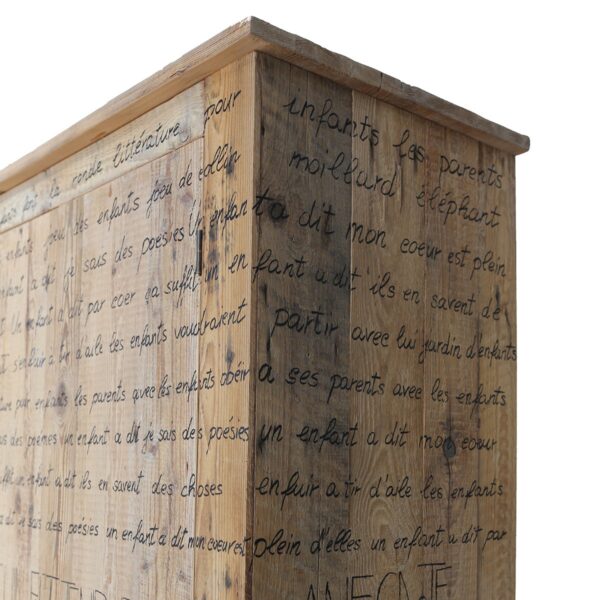 font la ronde littérature pour infants les parents
enfants jeu des enfants jeu de collin moillard éléphant
enfant a dit je sais des poésies Un enfant a dit mon coeur est plein
Un enfant a dit par coer ça suffit un enfant a dit ils en savent de
s'enfuir a tir d'aile les enfants voudraient partir avec lui jardin d'enfants
pour enfants les parents avec les enfants obéir a ses parents avec les enfants
des poèmes un enfant a dit je sais des poésies un enfant a dit mon coeur
suffit un enfant a dit ils en savent des choses enfuir a tir d'aile les enfants
a dit je sais des poésies un enfant a dit mon coeur est plein d'elles un enfant a dit par